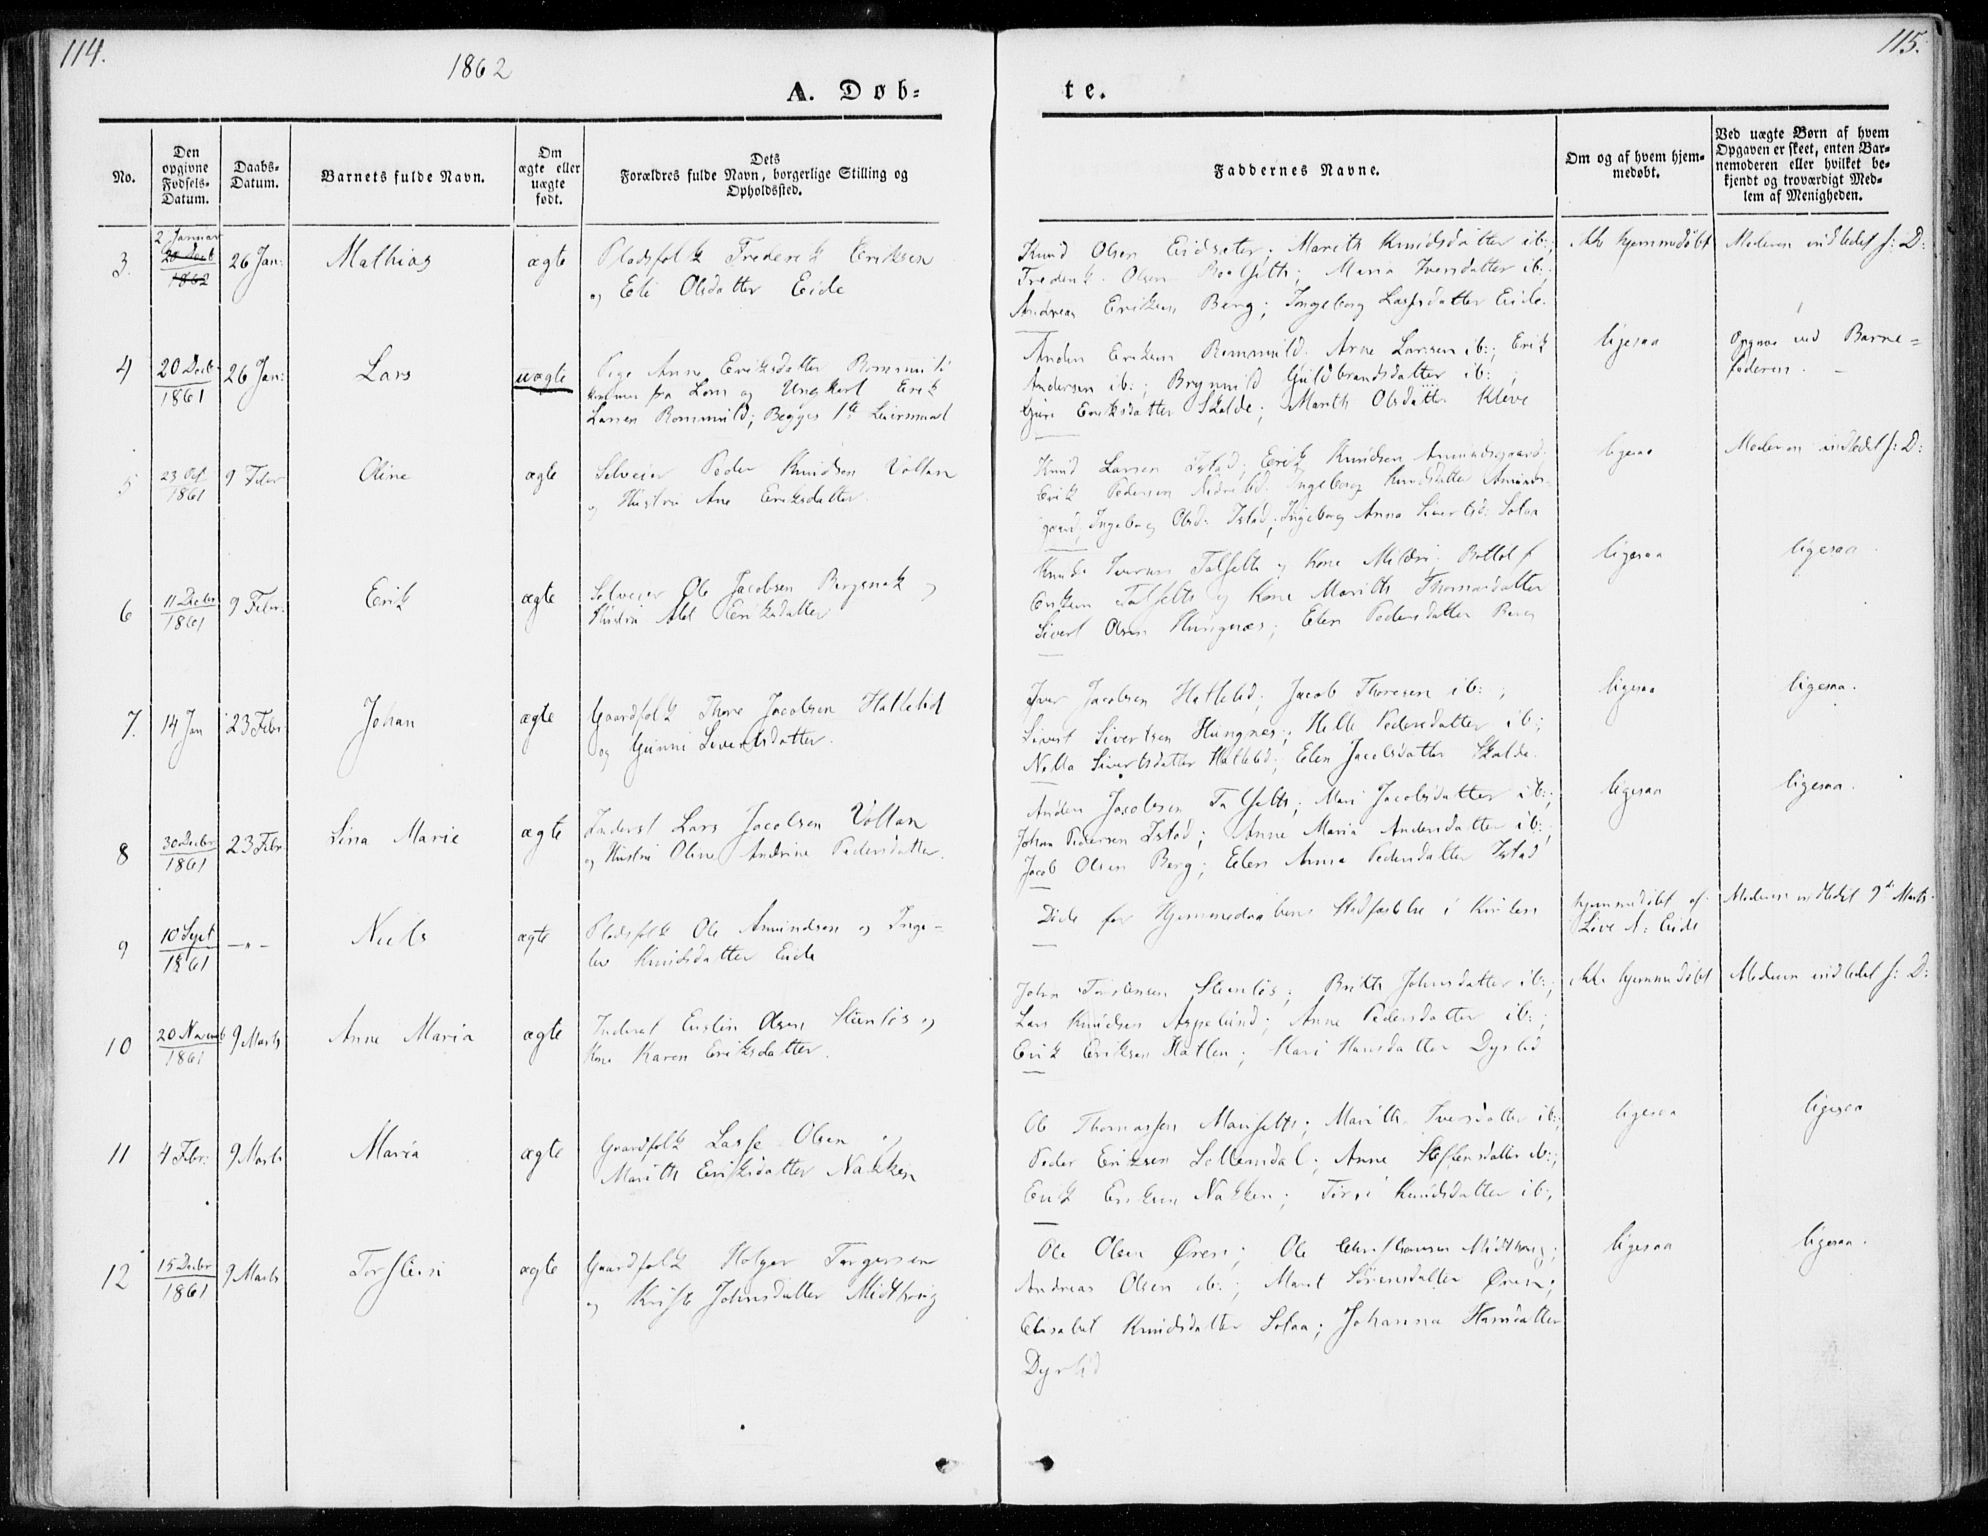 114.
1862
115.
A. Døb-
te.
No.
Den opgivne Fødsels-Datum.
Daabs-Datum.
Barnets fulde Navn.
Om ægte eller uægte født.
Dets Forældres fulde Navn, borgerlige Stilling og Opholdssted.
Faddernes Navne.
Om og af hvem hjem-
medøbt.
Ved uægte Børn af hvem
Opgaven er skeet, enten Bar-
nemoderen eller hvilket be-
kjendt og troværdigt Med-
lem af Menigheden.
3.
2 Januar
1862
26 Jan:
Mathias
ægte
Pladsfolk Frederik Eriksen
og Eli Olsdatter Eide
Knud Olsen Eidsæter; Marith Knudsdatter ib:;
Frederik Olsen; Maria Iversdatter ib:;
Andreas Eriksen Berg; Ingeborg Lassesdatter Eide.
ikke hjemmedøbt
Moderen indledet s: D:
4
20 Decbr
1861
26 Jan:
Lars
uægte
Pige Anne Eriksdatter
kommen fra Lom og Ungkarl Erik
Larsen Rommuld; Begges 1ste Leiermaal
Anden Eriksen Rommuld. Arne Larsen ib:; Erik
Andersen ib:; Brynnild Guldbrandsdatter ib:;
Guri Eriksdatter Skalde; Marith Olsdatter Kleve
ligesaa
Opgave ved Barne=
faderen. –
5
23 Oct
1861
9 Febr
Oline
ægte
Selveier Peder Knudsen Voltan
og Hustru Ane Eriksdatter.
Knud Larsen Istad; Erik Knudsen Amundsgaard
Erik Pedersen; Ingeborg Knudsdatter Amunds-
gaard; Ingeborg Olsd: Istad; Ingeborg Anna Sivertsd: Solaa
ligesaa
Moderen indledet s: D:
6
11 Decbr
1861
9 Febr:
Erik
ægte
Selveier Ole Jacobsen Bergsnak og
Hustru Eriksdatter
Knud Iversen Talseth og Kone; Bottolf
Eriksen Talseth og Kone Marith Thomasdatter
Sivert Olsen Hungnæs; Elen Pedersdatter Berg
ligesaa
ligesaa.
7.
14 Jan
23 Febr
Johan
ægte
Gaardfolk Thore Jacobsen Hattelid
og Gunni Sivertsdatter.
Iver Jacobsen Hattelid; Jacob Thoresen ib:;
Sivert Sivertsen Hungnes; Pedersdatter ib:;
Sivertsdatter Hattelid; Elen Jacobsdatter Skalde.
ligesaa
ligesaa.
8
30 Decbr
1861
23 Febr
Lina Marie
ægte
Inderst Lars Jacobsen Voltan
og Hustru Oline Andrine Pedersdatter.
Anders Jacobsen Talseth; Mari Jacobsdatter ib:;
Johan Pedersen Istad; Anne Maria Andersdatter ib:;
Jacob Olsen Berg; Elen Anna Pedersdatter Istad
ligesaa
ligesaa.
9
10 Sept
1861
– " –
Niels
ægte
Pladsfolk Ole Amundsen og Inge-
Knudsdatter Eide
Døde før Hjemmedaabens Stadfæstelse i Kirken
hjemmedøbt af
A: Eide
Moderen indledet 9de Marts.
10
20 Novemb
1861
9 Marts
Anne Maria
ægte
Inderst Olsen Steenløs og
Kone Karen Eriksdatter.
John Torstensen Steenløs; Brith Johnsdatter ib:;
Lars Knudsen Aspelund; Anne Pedersdatter ib:;
Erik Eriksen Hatlen; Mari Hansdatter Dyrlid
ikke hjemmedøbt
Moderen indledet s: D:
11
4 Febr:
9 Marts
Maria
ægte
Gaardfolk Lasse Olsen og
Marith Eriksdatter Nakken
Ole Thomassen Mauseth; Marith Iversdatter ib:;
Peder Eriksen Sollemdal; Anne Steffensdatter ib:;
Erik Eriksen Nakken; Knudsdatter ib:,
ligesaa
ligesaa
12
15 Decbr
1861
9 Marts
Torsten
ægte
Gaardfolk Holger Torgersen
og Johnsdatter Midthoug
Ole Olsen Øren; Ole Christiansen Midthoug;
Andreas Olsen ib:; Marit Sørensdatter Øren;
Elisabet Knudsdatter Solaa; Johanna Hansdatter
Dyrlid
ligesaa
ligesaa.